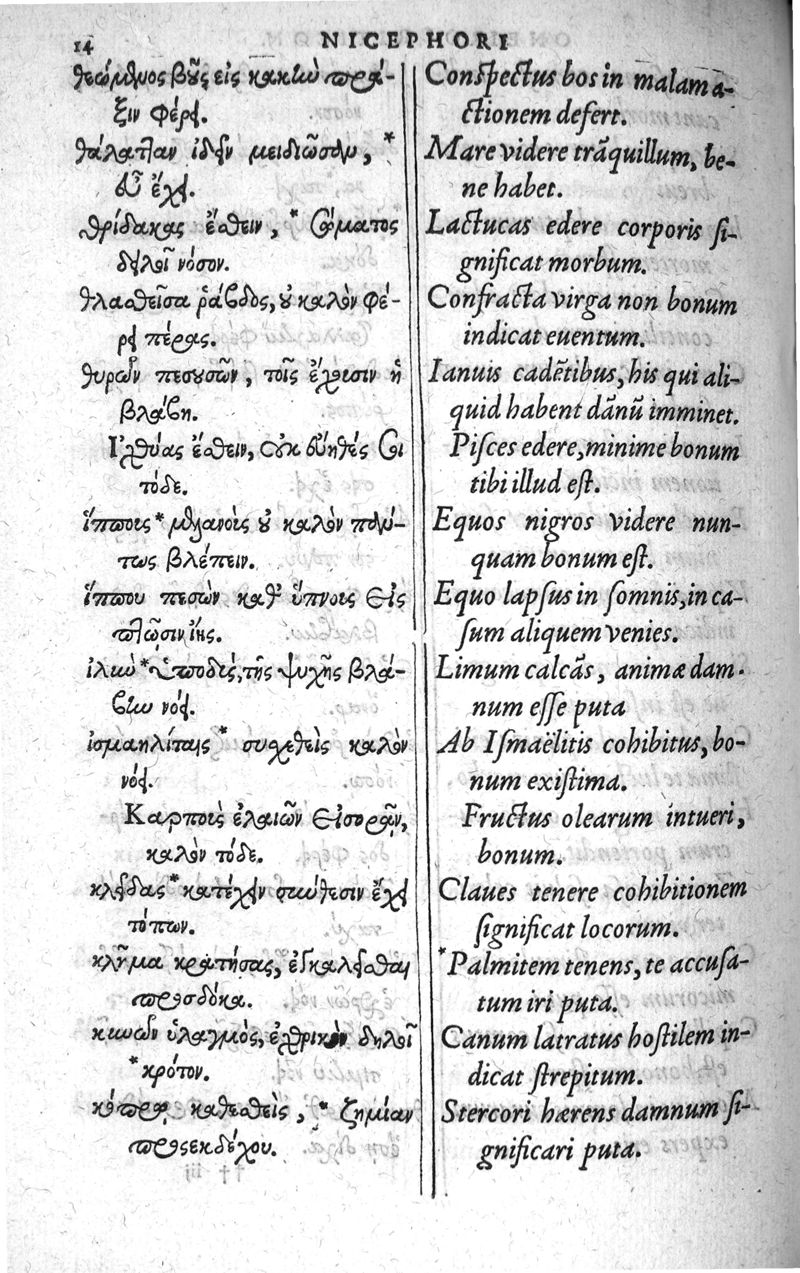 14 NICEPHORI
θεώμενος βοῦς εἰς κακὴν πρᾶ-
ξιν φέρει.
θάλατταν ἰδεῖν μειδιῶσαν, *
εὖ ἔχει.
θρίδακας ἔσθειν, * σώματος
δηλοῖ νόσον.
θλασθεῖσα ῥάβδος, οὐ καλὸν φέ-
ρει πέρας.
θυρῶν πεσουσῶν, τοῖς ἔχουσιν ἡ
βλάβη.
Ἰχθύας ἔσθειν, οὐκ εὐηθές σοι
τόδε.
ἵππους * μέλανους οὐ καλὸν παν-
τως βλέπειν.
ἵππου πεσὼν καθ' ὕπνους εἰς
πτῶσιν ἥκεις.
ἰλὺν * πατῶν, τῆς ψυχῆς βλά-
βην νόει.
ἰσμαηλίταις * συσχεθεὶς καλὸν
νόει.
Καρποὺς ἐλαιῶν εἰσορᾶν,
καλὸν τόδε.
κλεῖδας * κατέχειν σχέσιν ἔχει
τόπων.
κλῆμα κρατήσας, ἐγκαλεῖσθαι
προσδόκα.
κυνῶν ὑλαγμὸς, ἐχθρικὸν δηλοῖ
* κρότον.
κόπρῳ καθεσθεὶς, * ζημίαν
προσεκδέχου.
Conspectus bos in malam a-
ctionem defert.
Mare videre trãquillum, be-
ne habet.
Lactucas edere corporis si-
gnificat morbum.
Confracta virga non bonum
indicat euentum.
Ianuis cadẽtibus, his qui ali-
quid habent dãnũ imminet.
Pisces edere, minime bonum
tibi illud est.
Equos nigros videre nun-
quam bonum est.
Equo lapsus in somniis, in ca-
sum aliquem venies.
Limum calcãs, animæ dam-
num esse puta
Ab Ismaëlitis cohibitus, bo-
num existima.
Fructus olearum intueri,
bonum.
Claues tenere cohibitionem
significat locorum.
*Palmitem tenens, te accusa-
tum iri puta.
Canum latratus hostilem in-
dicat strepitum.
Stercori hærens damnum si-
gnificari puta.